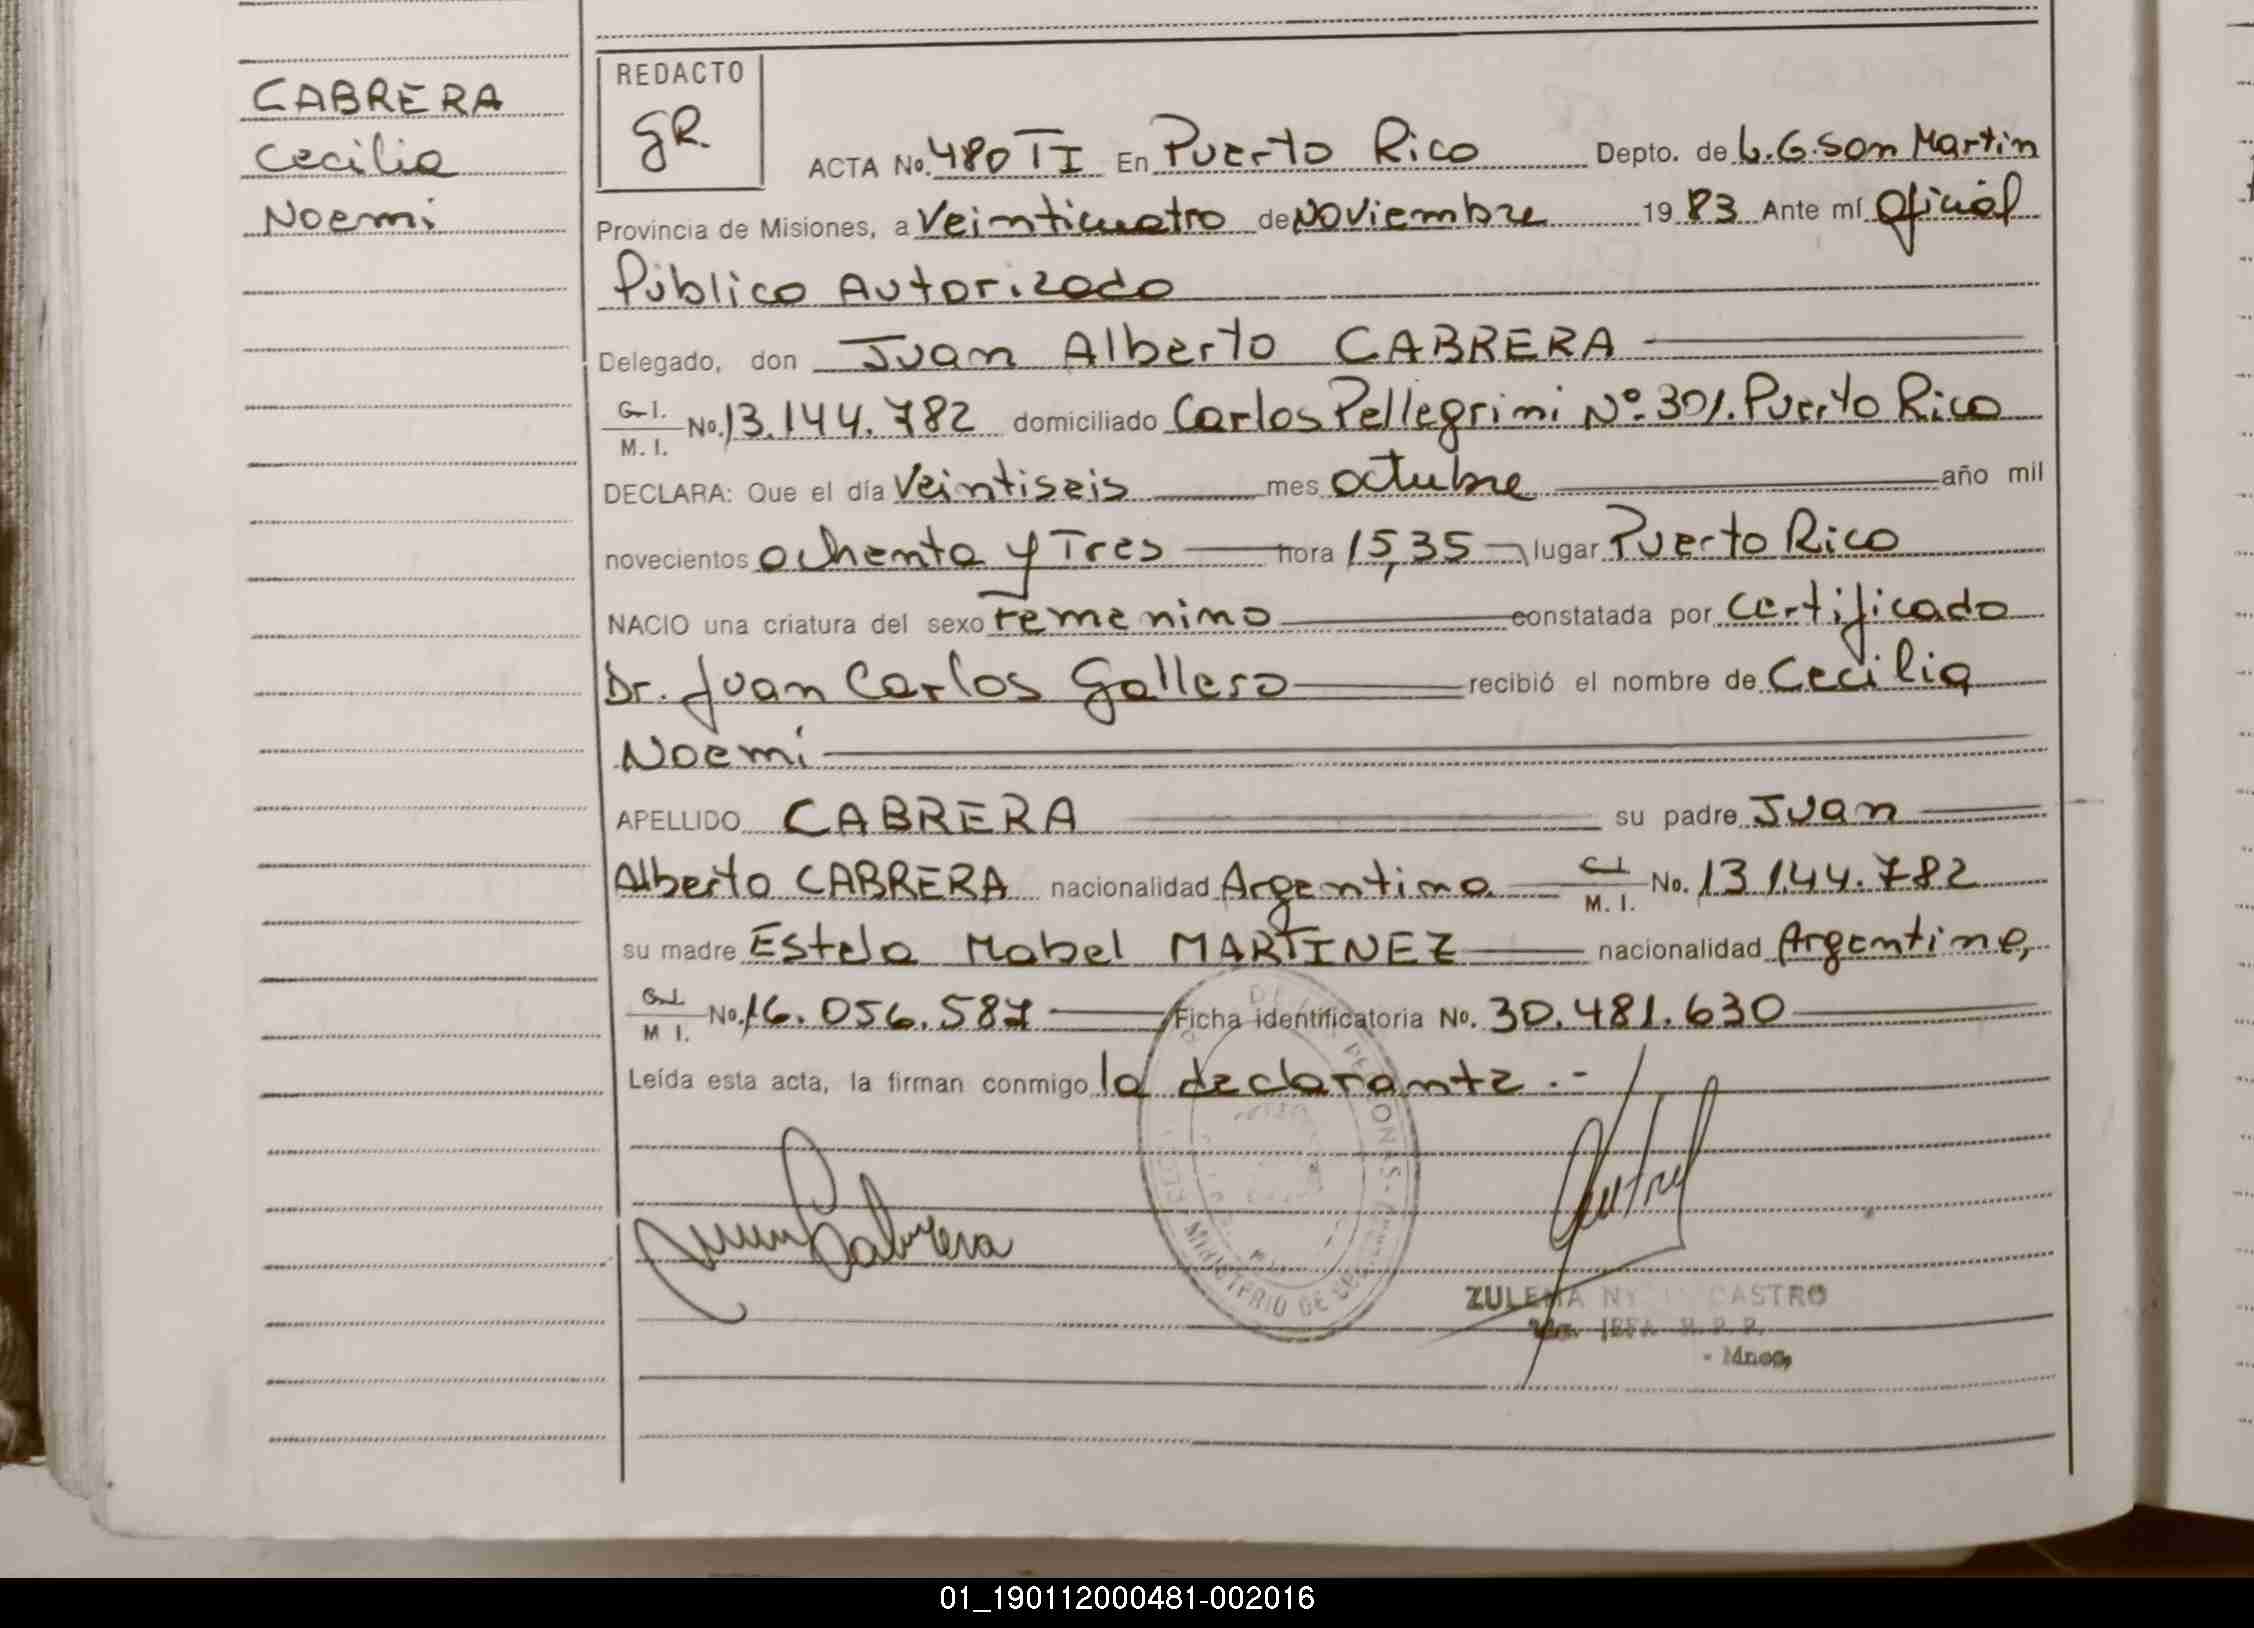 CABRERA
Cecilia
Noemi
REDACTO
gR.
ACTA No. 480 TI En Puerto Rico Depto. de L.G. San Martin
Provincia de Misiones, a Veinticuatro de Noviembre 19 83 Ante mí Oficial
Público Autorizado
Delegado, don Juan Alberto CABRERA
C.I. / M.I. No. 13.144.782 domiciliado Carlos Pellegrini Nº 301. Puerto Rico
DECLARA: Que el día Veintiseis mes octubre año mil
novecientos ochenta y Tres hora 15,35 lugar Puerto Rico
NACIO una criatura del sexo Femenino constatada por certificado
Dr. Juan Carlos Gallero recibió el nombre de Cecilia
Noemi
APELLIDO CABRERA su padre Juan
Alberto CABRERA nacionalidad Argentina C.I. / M.I. No. 13.144.782
su madre Estela Mabel MARTINEZ nacionalidad Argentina,
C.I. / M I. No. 16.056.587 Ficha identificatoria No. 30.481.630
Leída esta acta, la firman conmigo la declarante.-
PERSONAS - MINISTERIO DE GOBIERNO
Juan Cabrera
ZULEMA CASTRO
JEFA R.P.P.
- Mnes,
01_190112000481-002016